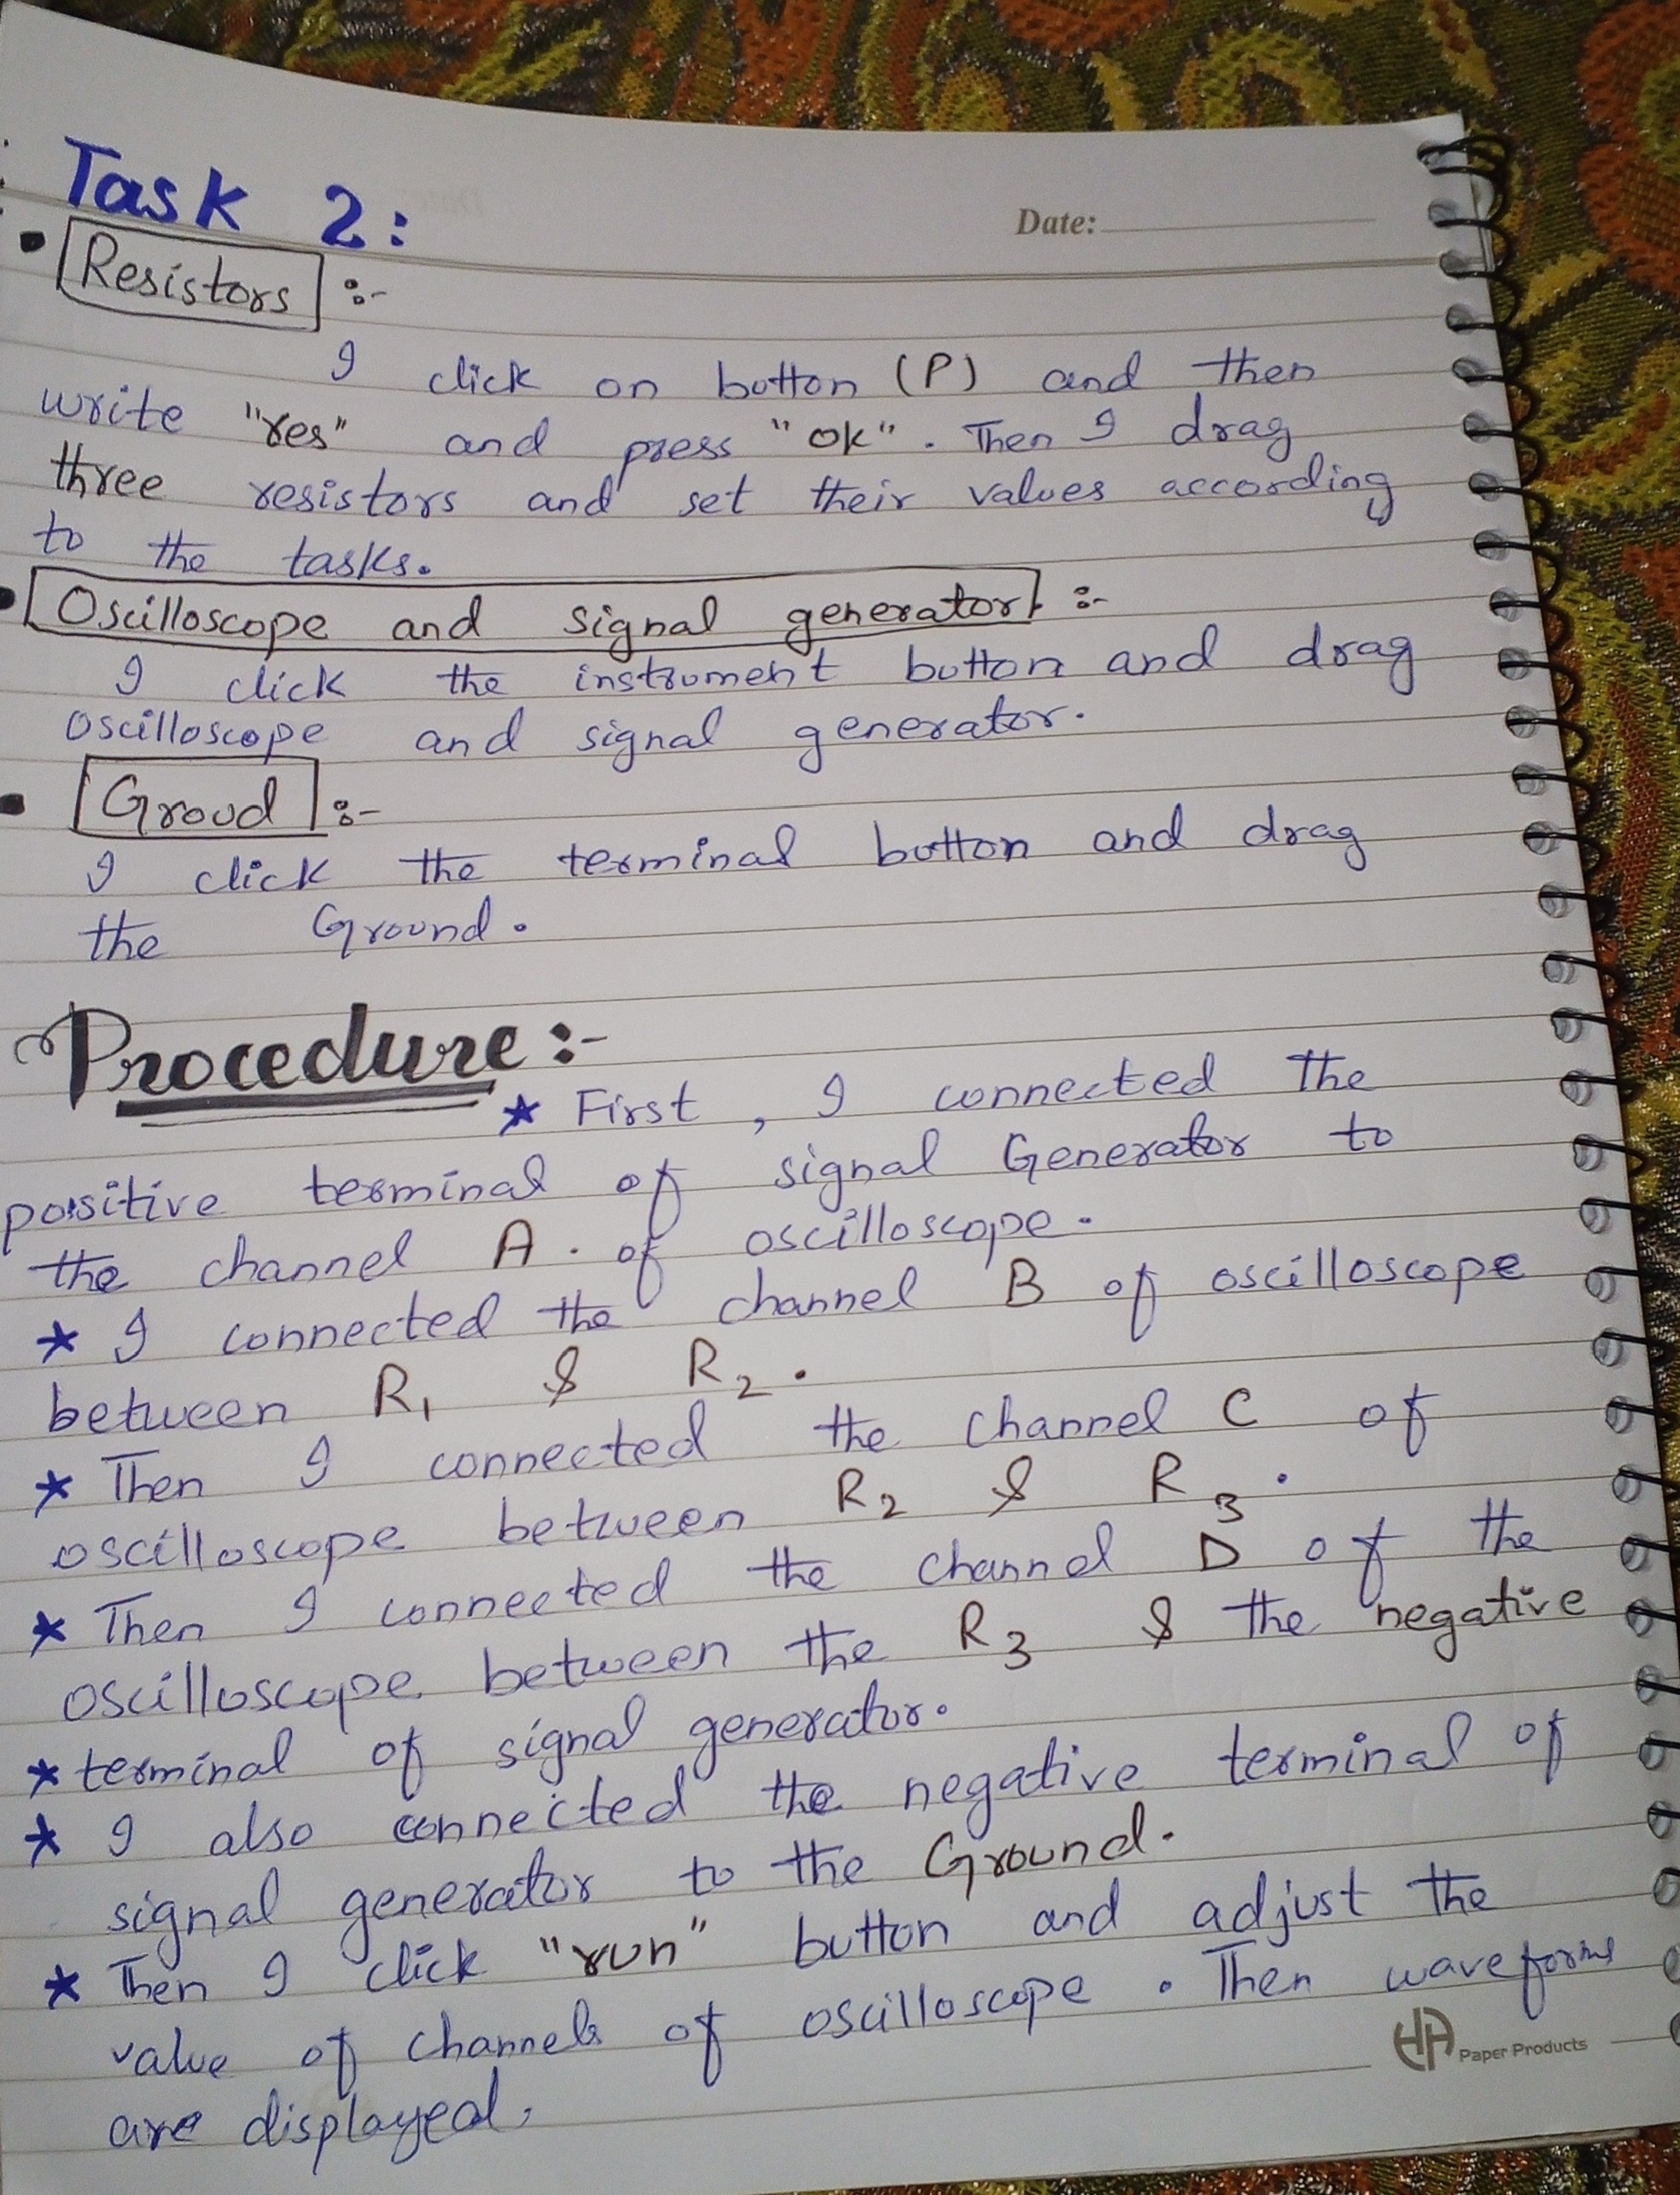 Task 2:
Date:
• Resistors :-
I click on button (P) and then
write "res" and press "ok". Then I drag
three resistors and set their values according
to the tasks.
• Oscilloscope and signal generator :-
I click the instrument button and drag
oscilloscope and signal generator.
• Groud :-
I click the terminal button and drag
the Ground.
Procedure :-
* First, I connected the
positive terminal of signal Generator to
the channel A. of oscilloscope.
* I connected the channel B of oscilloscope
between R1 & R2.
* Then I connected the channel C of
oscilloscope between R2 & R3.
* Then I connected the channel D of the
oscilloscope between the R3 & the negative
* terminal of signal generator.
* I also connected the negative terminal of
signal generator to the Ground.
* Then I click "run" button and adjust the
value of channels of oscilloscope. Then waveforms
are displayed.
HA Paper Products